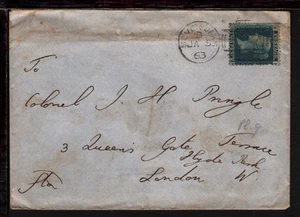 JA 5
63
To
Colonel J H Pringle
Pl. 9
3 Queen's Gate Terrace
Hyde Park
London W.